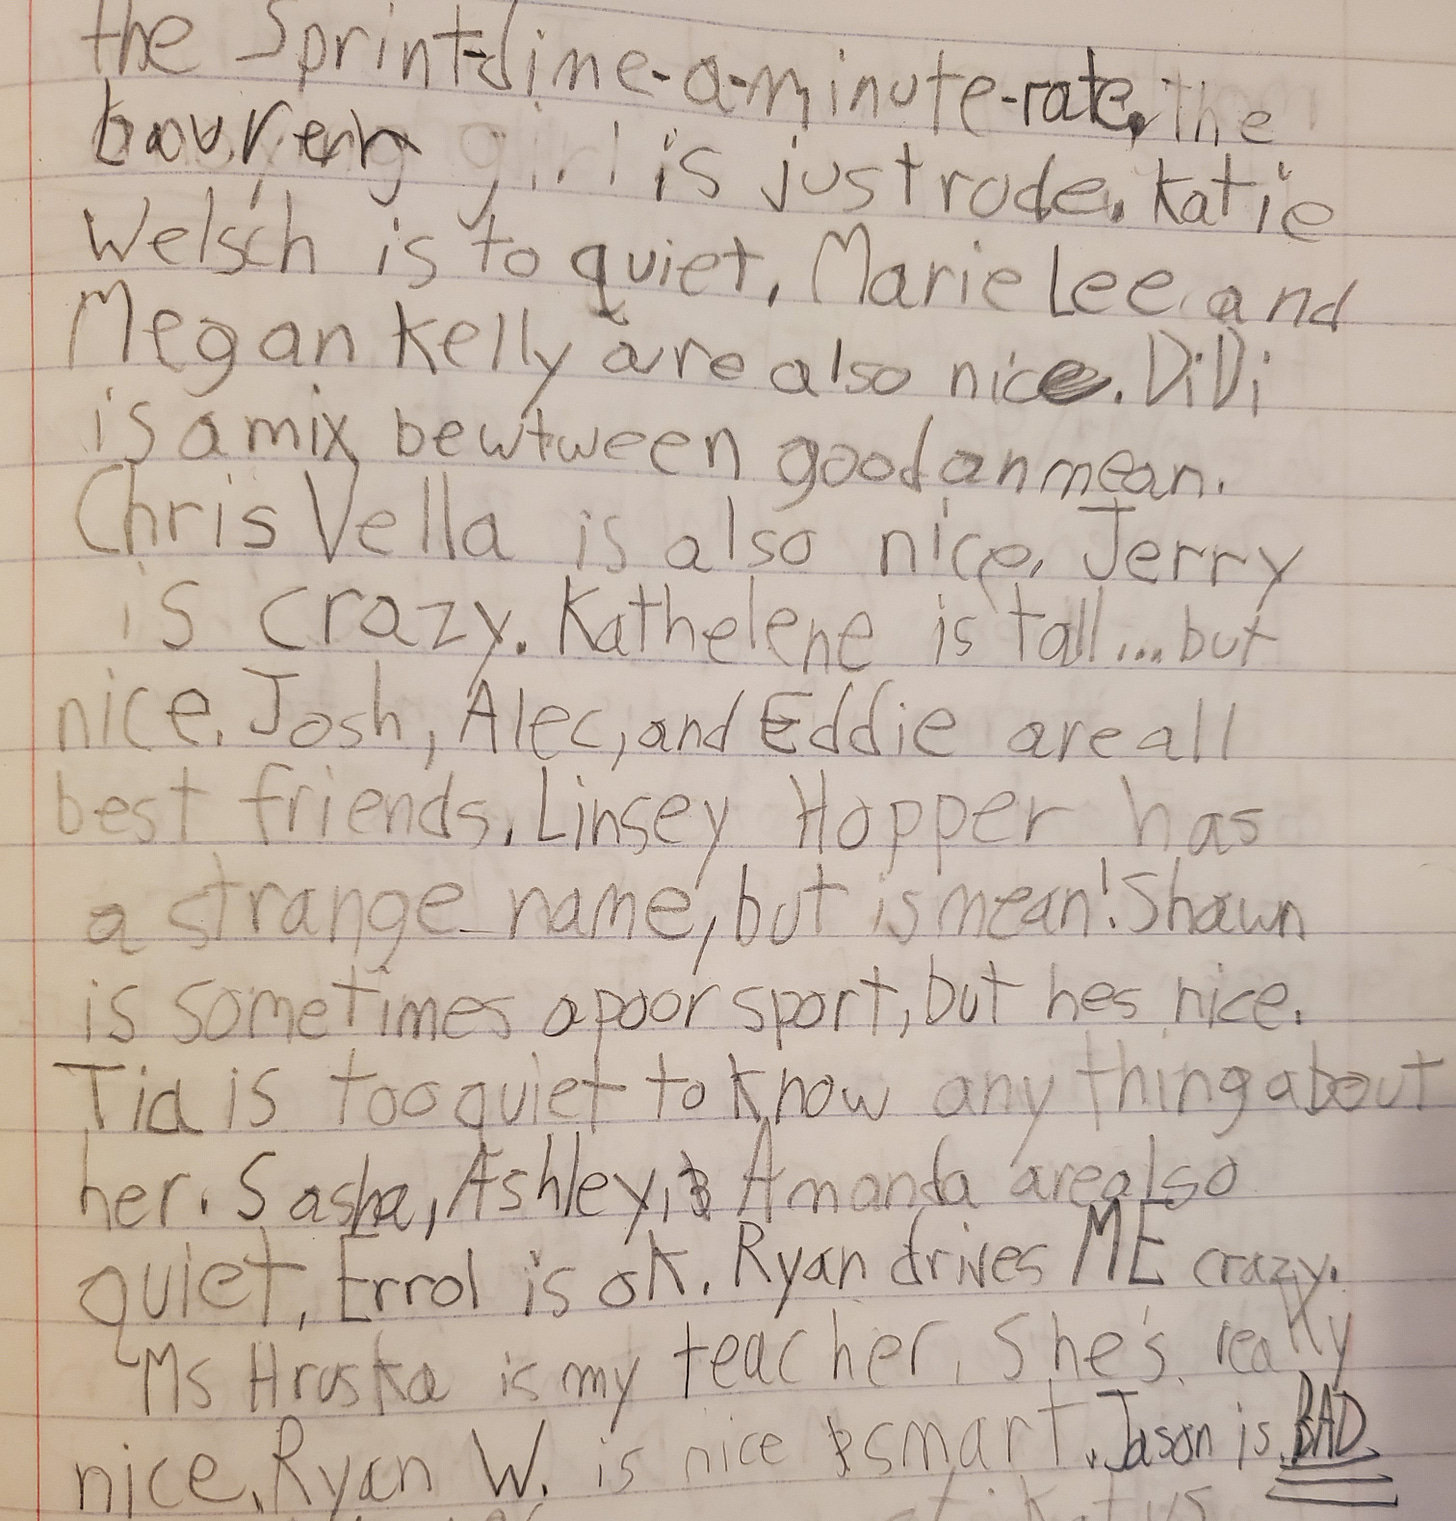 the Sprint-dime-a-minute-rate. The
girl is just rude. Katie
Welsch is to quiet. Marie Lee and
Megan Kelly are also nice. DiDi
is a mix bewtween good an mean.
Chris Vella is also nice. Jerry
is crazy. Kathelene is tall...but
nice. Josh, Alec, and Eddie are all
best friends. Linsey Hopper has
a strange name, but is mean! Shawn
is sometimes a poor sport, but hes nice.
Tia is too quiet to know any thing about
her. Sasha, Ashley, & Amanda are also
quiet. Errol is ok. Ryan drives ME crazy.
Ms Hruska is my teacher. She's really
nice. Ryan W. is nice & smart. Jason is BAD